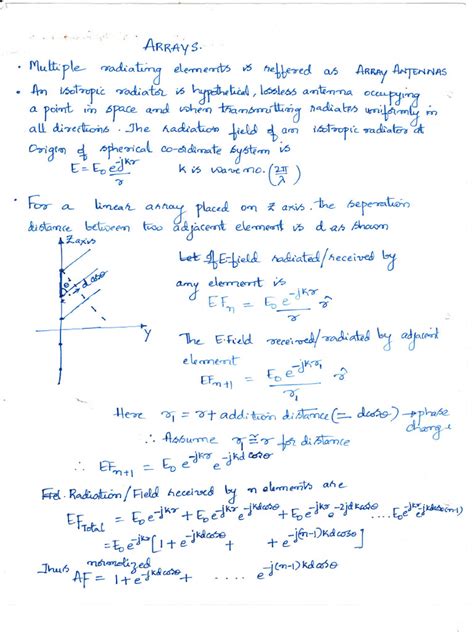 ARRAYS.
• Multiple radiating elements is reffered as ARRAY ANTENNAS
• An isotropic radiator is hypothetical, lossless antenna occupying
a point in space and when transmitting radiates uniformly in
all directions. The radiation field of an isotropic radiator at
Origin of spherical co-ordinate system is
E = E₀ e^-jkr / r k is wave no. (2π/λ)
• For a linear array placed on Z axis. the seperation
distance between two adjacent element is d as shown
Z axis
Let E-field radiated/received by
dcosθ
any element is
EFn = E₀ e^-jkr / r r̂
y
The E-Field received/radiated by adjacent
element
EFn+1 = E₀ e^-jkr₁ / r₁ r̂
Here r₁ = r + addition distance (= dcosθ) → phase
change
∴ Assume r₁ ≅ r for distance
∴ EFn+1 = E₀ e^-jkr e^-jkdcosθ
Radiation/Field received by n elements are
EFTotal = E₀e^-jkr + E₀e^-jkr e^-jkdcosθ + E₀e^-jkr e^-2jdkcosθ ....
= E₀e^-jkr [1 + e^-jkdcosθ + + e^-j(n-1)kdcosθ]
Thus normalized
AF = 1 + e^-jkdcosθ + .... e^-j(n-1)kdcosθ